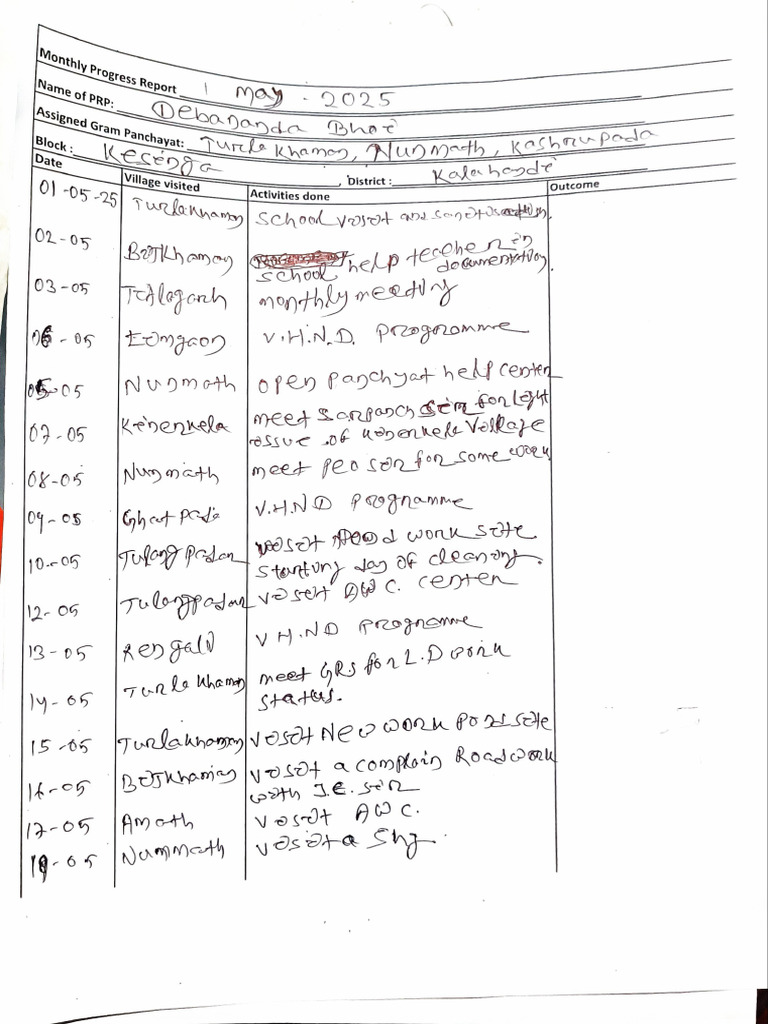 Monthly Progress Report 1 May - 2025
Name of PRP: Debananda Bhoi
Assigned Gram Panchayat: Turlakhaman, Nunmath, Kashrupada
Block: Kesinga, District: Kalahandi
Date Village visited Activities done Outcome
01-05-25 Turlakhaman School visit and
02-05 Birkhaman School help teacher in
documentation.
03-05 monthly meeting
-05 V.H.N.D. Programme
05-05 Nunmath open panchyat help center
07-05 Kenerkela meet Sarpanch Sir for light
issue of Kenerkela Village
08-05 Nunmath meet PEO sir for some work
09-05 Ghatpada V.H.ND Programme
10-05 Tulangpadar visit work site
starting day of cleaning.
12-05 Tulangpadar visit AWC. center
13-05 Rengali VH.ND Programme
14-05 Turlakhaman meet GRS for L.D work
status.
15-05 Turlakhaman visit New work site
16-05 Birkhaman visit a complain Road work
with J.E. sir
17-05 Amath visit AWC.
19-05 Nunmath visit a Shg.